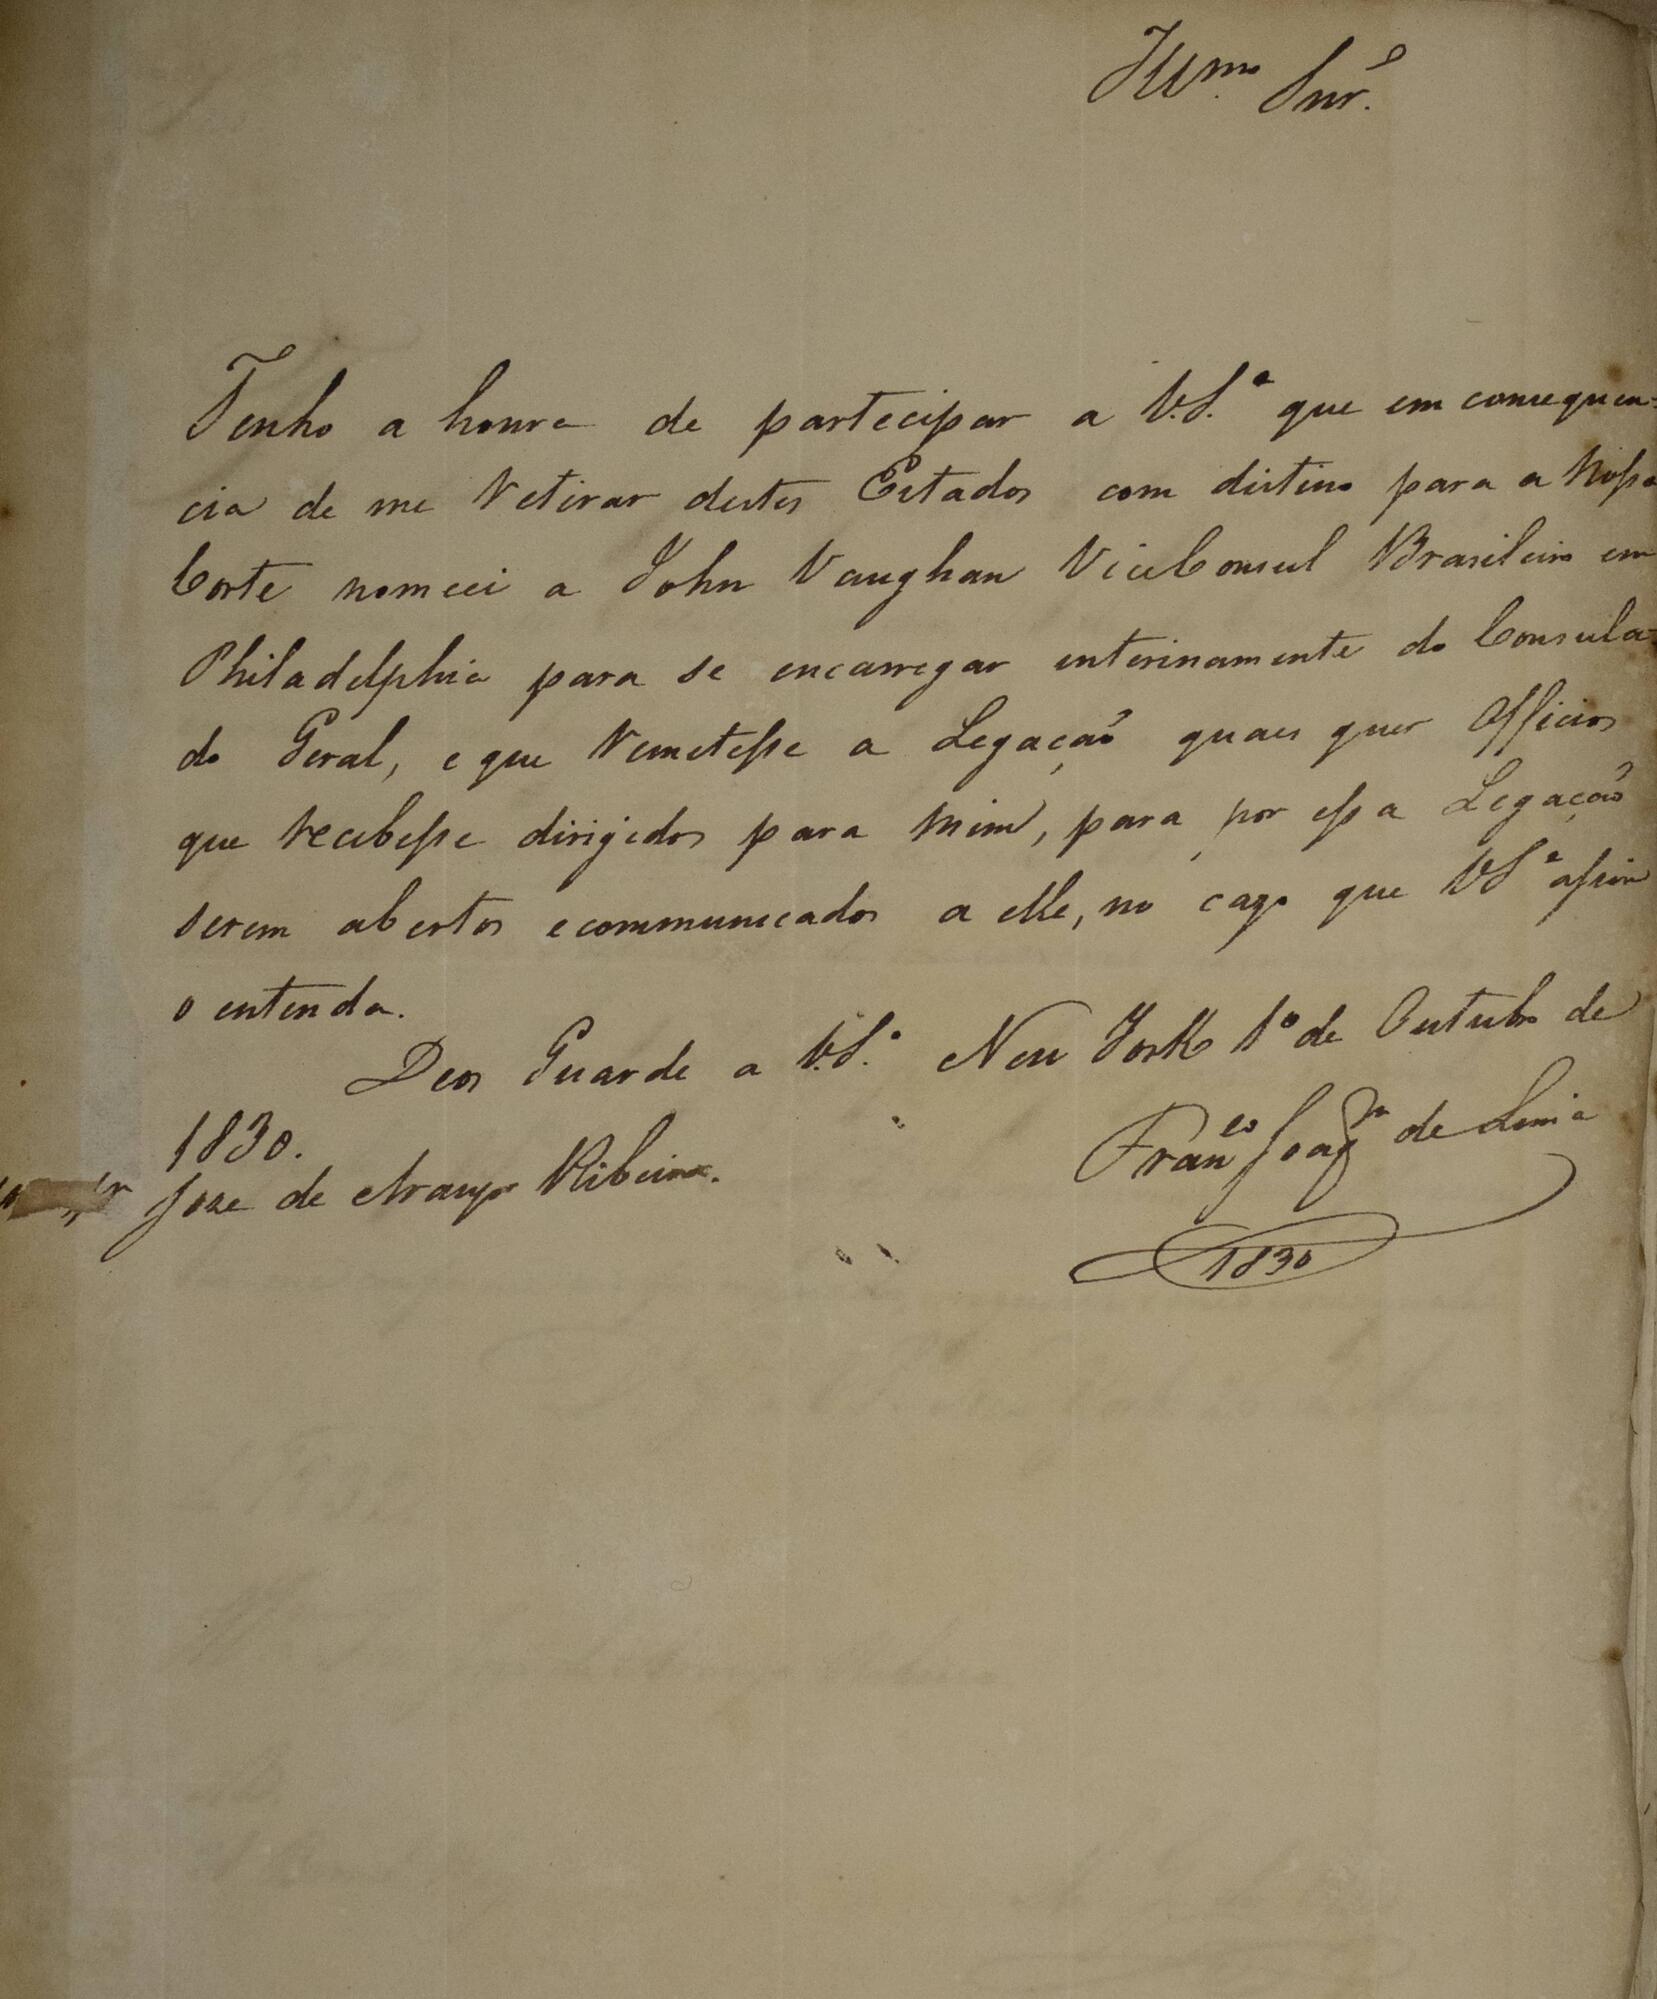 Illmo. Snr.
Tenho a honra de partecipar a V.S.ª que em consequen-
cia de me Retirar destes Estados com distino para a Nossa
Corte nomeei a John Vaughan ViceConsul Brasileiro em
Philadelphia para se encarregar interinamente do Consula-
do Geral, e que Remetesse a Legação quaes quer Officios
que Recebesse dirigidos para Mim, para por essa Legação
serem abertos e communicados a elle, no cazo que VSª assim
o entenda.
Deos Guarde a V.S.ª New York 1º de Outubro de
1830.
Franco Joaqm de Lima
Joze de Araujo Ribeiro.
1830